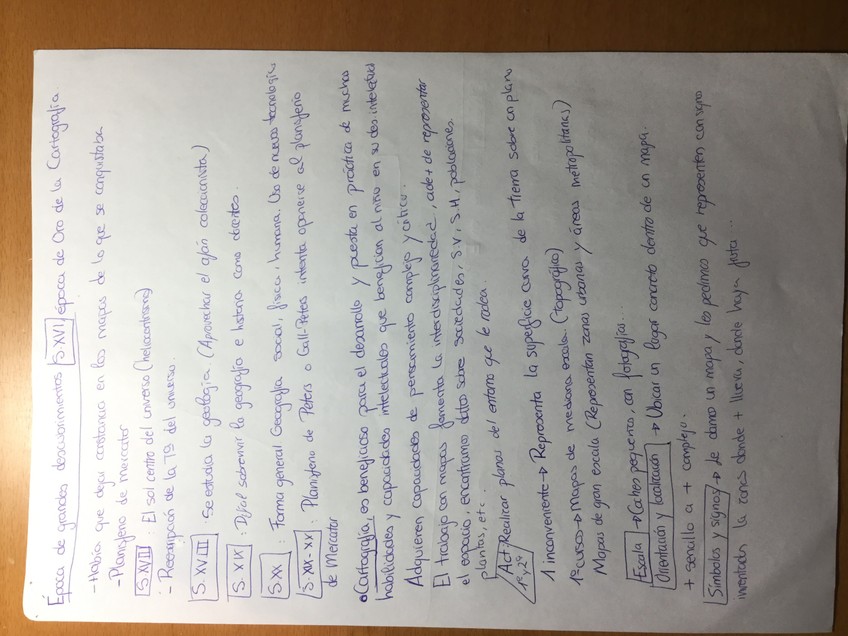 Época de grandes descubrimientos S.XVI época de Oro de la Cartografía
- Había que dejar constancia en los mapas de lo que se conquistaba
- Planisferio de Mercator
S.XVII : El sol centro del universo (heliocentrismo)
- Recompilación de la Tª del universo.
S. XVIII : Se estudia la geología. (Aprovechar el afán coleccionista)
S. XIX : Difícil sobrevivir la geografía e historia como docentes.
S XX : Forma general Geografía social, física, humana. Uso de nuevas tecnologías
S. XIX - XX : Planisferio de Peters o Gall-Peters intenta oponerse al planisferio
de Mercator
• Cartografía, es beneficioso para el desarrollo y puesta en práctica de muchas
habilidades y capacidades intelectuales que benefician al niño en su des. intelectual
Adquieren capacidades de pensamiento complejo y crítico.
El trabajo con mapas fomenta la interdisciplinariedad, ade+ de representar
el espacio, encontramos datos sobre sociedades, S.V, S.H, poblaciones.
plantas, etc.
Act Realizar planos del entorno que le rodea.
1º, 2º
1 inconveniente → Representa la superficie curva de la tierra sobre un plano
1º curso → Mapas de mediana escala. (topográfico)
Mapas de gran escala (Representan zonas urbanas y áreas metropolitanas)
Escala → Coches pequeños, con fotografía...
Orientación y localización → Ubicar un lugar concreto dentro de un mapa.
+ sencillo a + complejo.
Símbolos y signos → Le damos un mapa y les pedimos que representen con signo
inventados la zonas donde + llueva, donde haya fiesta ...